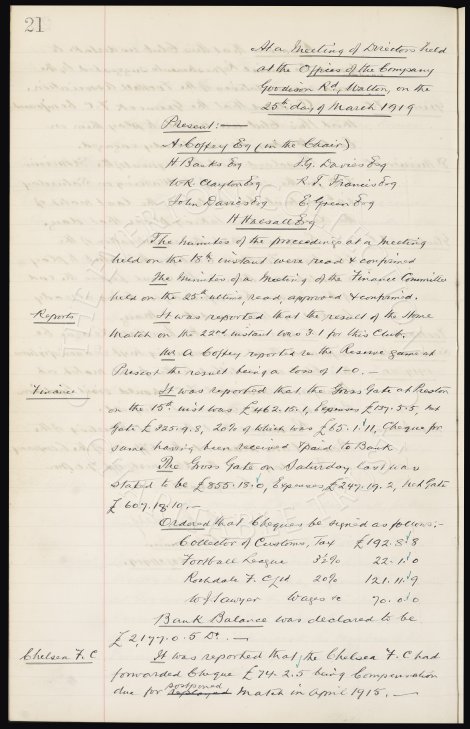 21
At a Meeting of Directors held
at the Offices of the Company
Goodison Rd, Walton, on the
25th day of March 1919
Present:—
A. Coffey Esq (in the Chair)
H Banks Esq J.G. Davies Esq
W.R. Clayton Esq R.T. Francis Esq
John Davies Esq E. Green Esq
H Halsall Esq
The minutes of the proceedings at a Meeting
held on the 18th instant were read & confirmed
The minutes of a Meeting of the Finance Committee
held on the 25th ultimo read, approved & confirmed.
Reports It was reported that the result of the Home
Match on the 22nd instant was 3-1 for this Club.
Mr A Coffey reported re the Reserve game at
Prescot the result being a loss of 1-0. —
Finance It was reported that the Gross Gate at Preston
on the 15th inst was £462.15.1, Expenses £137.5.5, net
Gate £325.9.8, 20% of which was £65.1.11, Cheque for
same having been received & paid to Bank.
The Gross Gate on Saturday last was
stated to be £855.18.0, Expenses £247.19.2, Net Gate
£607.18.10. —
Ordered that Cheques be signed as follows:-
Collector of Customs, Tax £192.8.8
Football League 3½% 22.1.0
Rochdale F.C. Ltd 20% 121.11.9
W.J. Sawyer Wages &c 70.0.0
Bank Balance was declared to be
£2,177.0.5 Dr. —
Chelsea F.C It was reported that the Chelsea F.C had
forwarded Cheque £74.2.5 being Compensation
due for postponed Match in April 1915. —